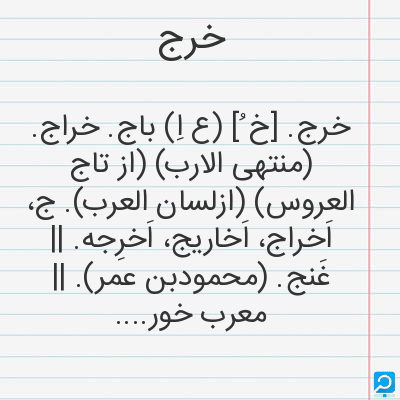 خرج
خرج. [خ ُ] (ع اِ) باج. خراج.
(منتهی الارب) (از تاج
العروس) (ازلسان العرب). ج،
اَخراج، اَخاریج، اَخرِجه. ||
غَنج. (محمودبن عمر). ||
معرب خور....